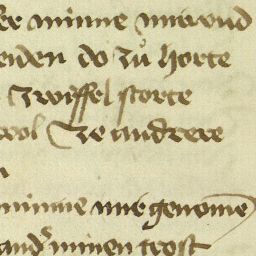 er minne mir vnd
eiden do zů horte
zwiffel storte
wol ze andrere
n
minne mir genome
and' minen trost